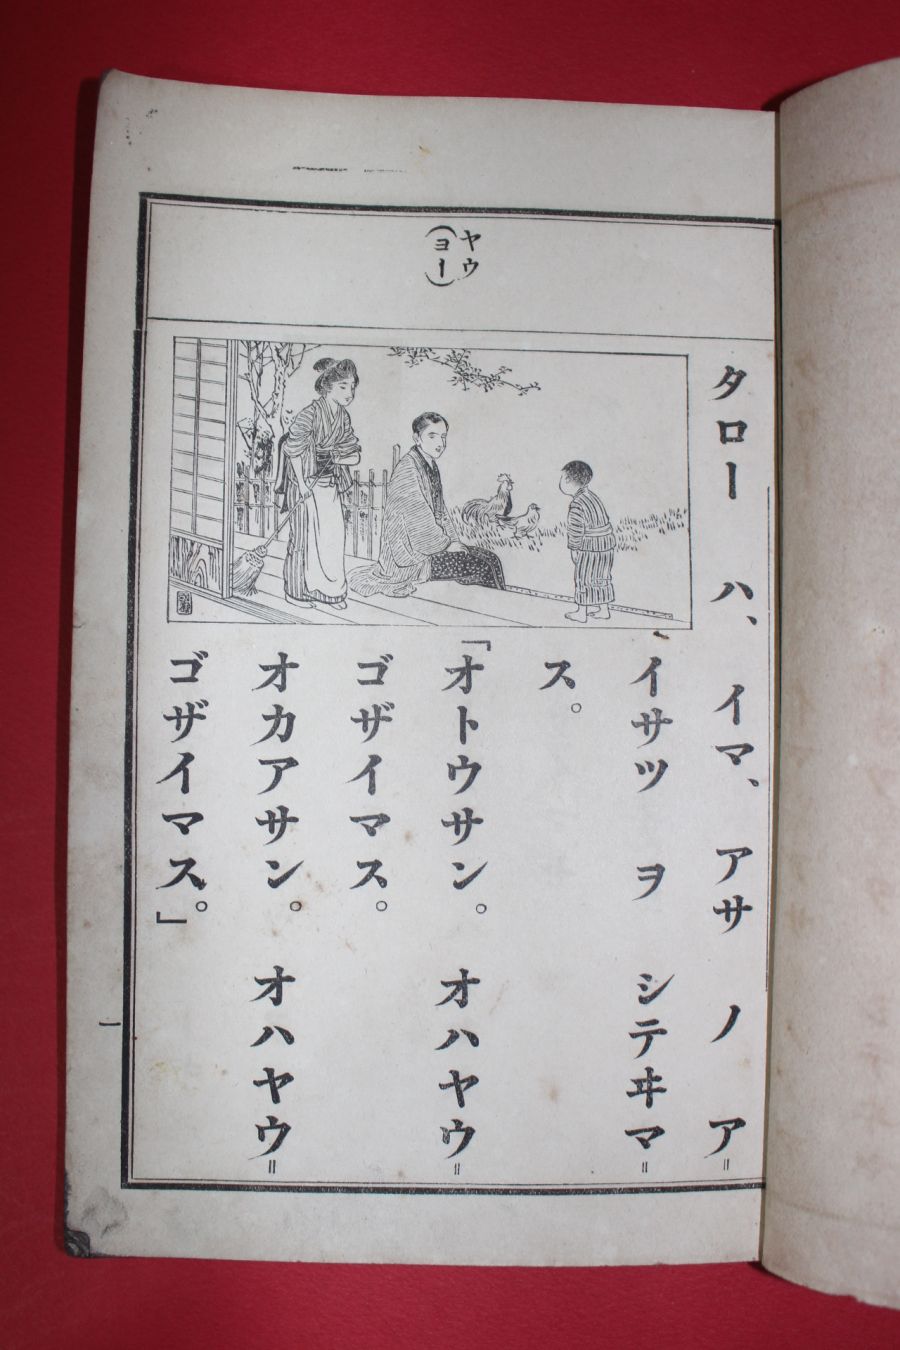 ヤウ
(ヨー)
タロー ハ、イマ、アサ ノ ア=
イサツ ヲ シテヰマ=
ス。
「オトウサン。オハヤウ=
ゴザイマス。
オカアサン。オハヤウ=
ゴザイマス。」
一